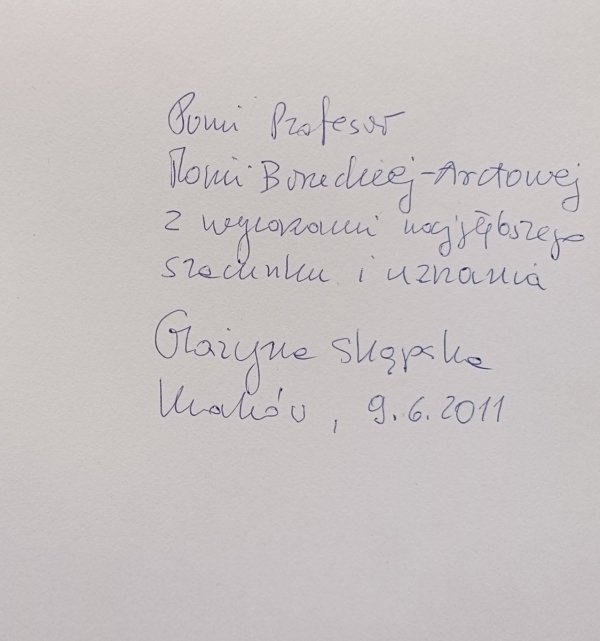 Pani Profesor
Marii Boruckiej-Arctowej
z wyrazami najgłębszego
szacunku i uznania
Grażyna Skąpska
Kraków, 9.6.2011